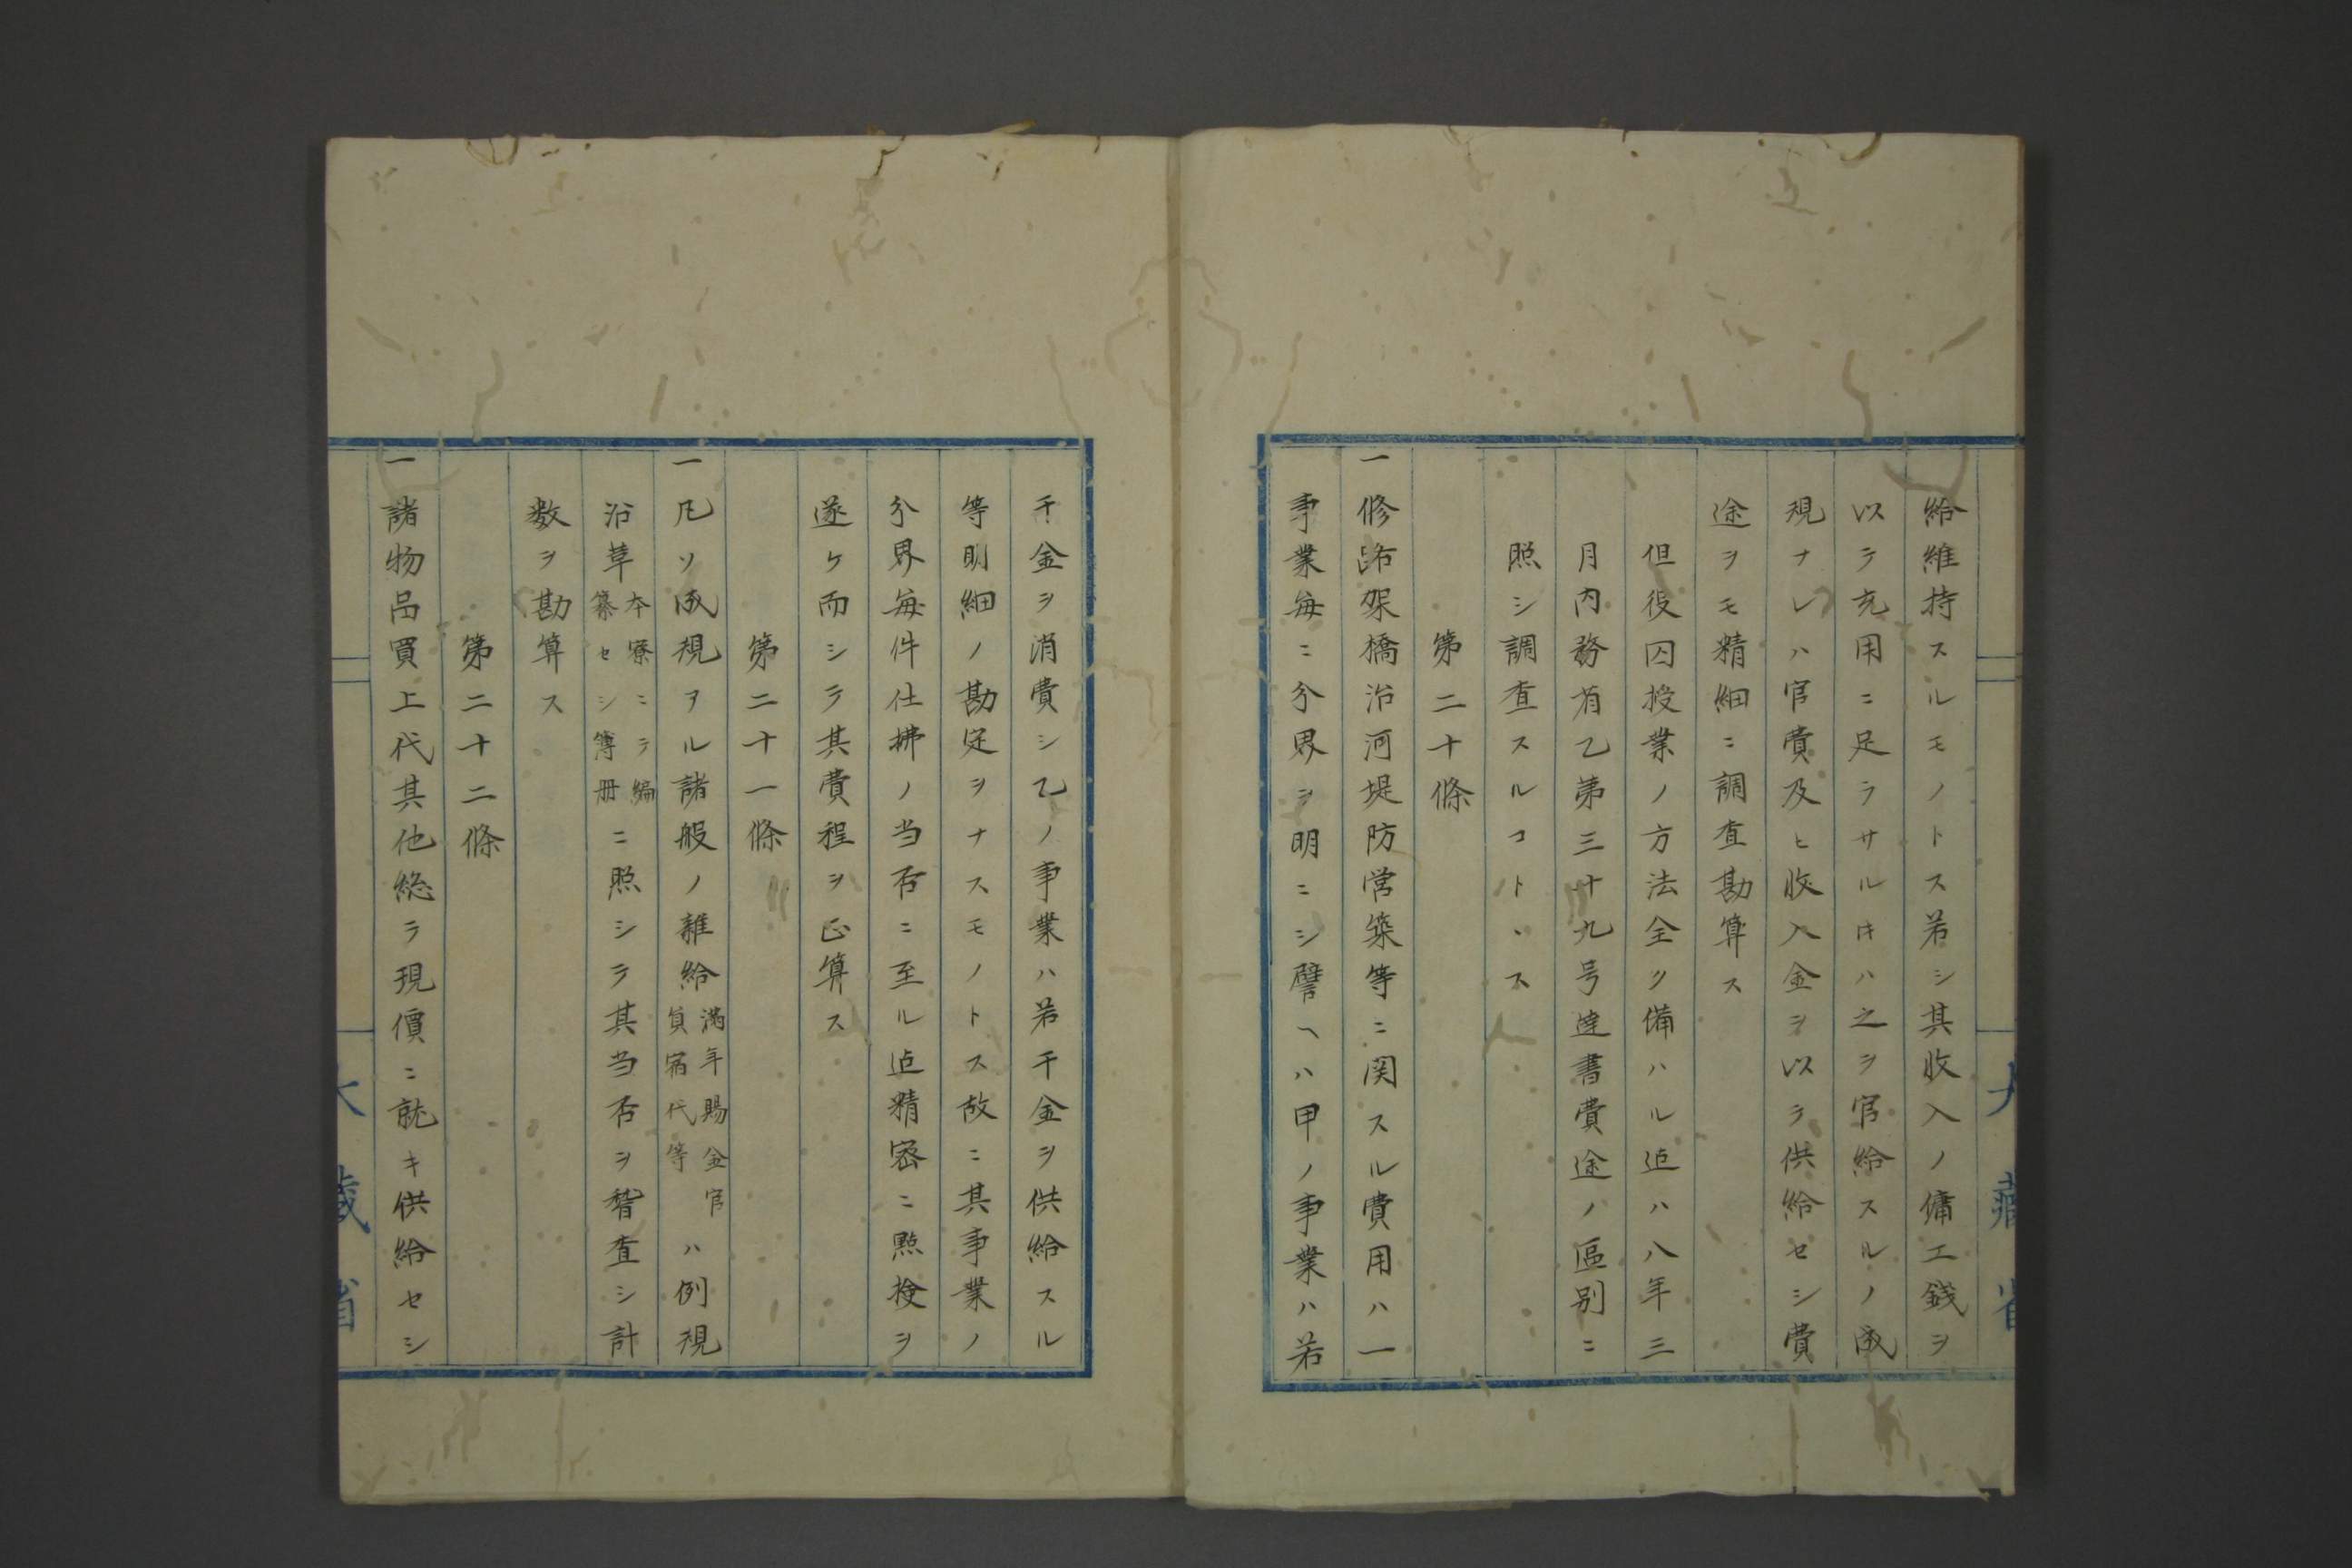 給維持スルモノトス若シ其收入ノ傭工錢ヲ
以テ充用ニ足ラサル𬼀ハ之ヲ官給スルノ成
規ナレハ官費及ヒ收入金ヲ以テ供給セシ費
途ヲモ精細ニ調査勘算ス
但役囚授業ノ方法全ク備ハル迠ハ八年三
月内務省乙第三十九号達書費途ノ區別ニ
照シ調査スルコトヽス
第二十條
一修路架橋治河堤防営築等ニ関スル費用ハ一
事業毎ニ分界ヲ明ニシ譬ヘハ甲ノ事業ハ若
干金ヲ消費シ乙ノ事業ハ若干金ヲ供給スル
等明細ノ勘定ヲナスモノトス故ニ其事業ノ
分界毎件仕拂ノ当否ニ至ル迠精密ニ㸃検ヲ
遂ケ而シテ其費程ヲ正算ス
第二十一條
一凡ソ成規アル諸般ノ雑給満年賜金官員宿代等ハ例規
沿革本寮ニテ編纂セシ簿冊ニ照シテ其当否ヲ稽査シ計
数ヲ勘算ス
第二十二條
一諸物品買上代其他総テ現價ニ就キ供給セシ
大藏省